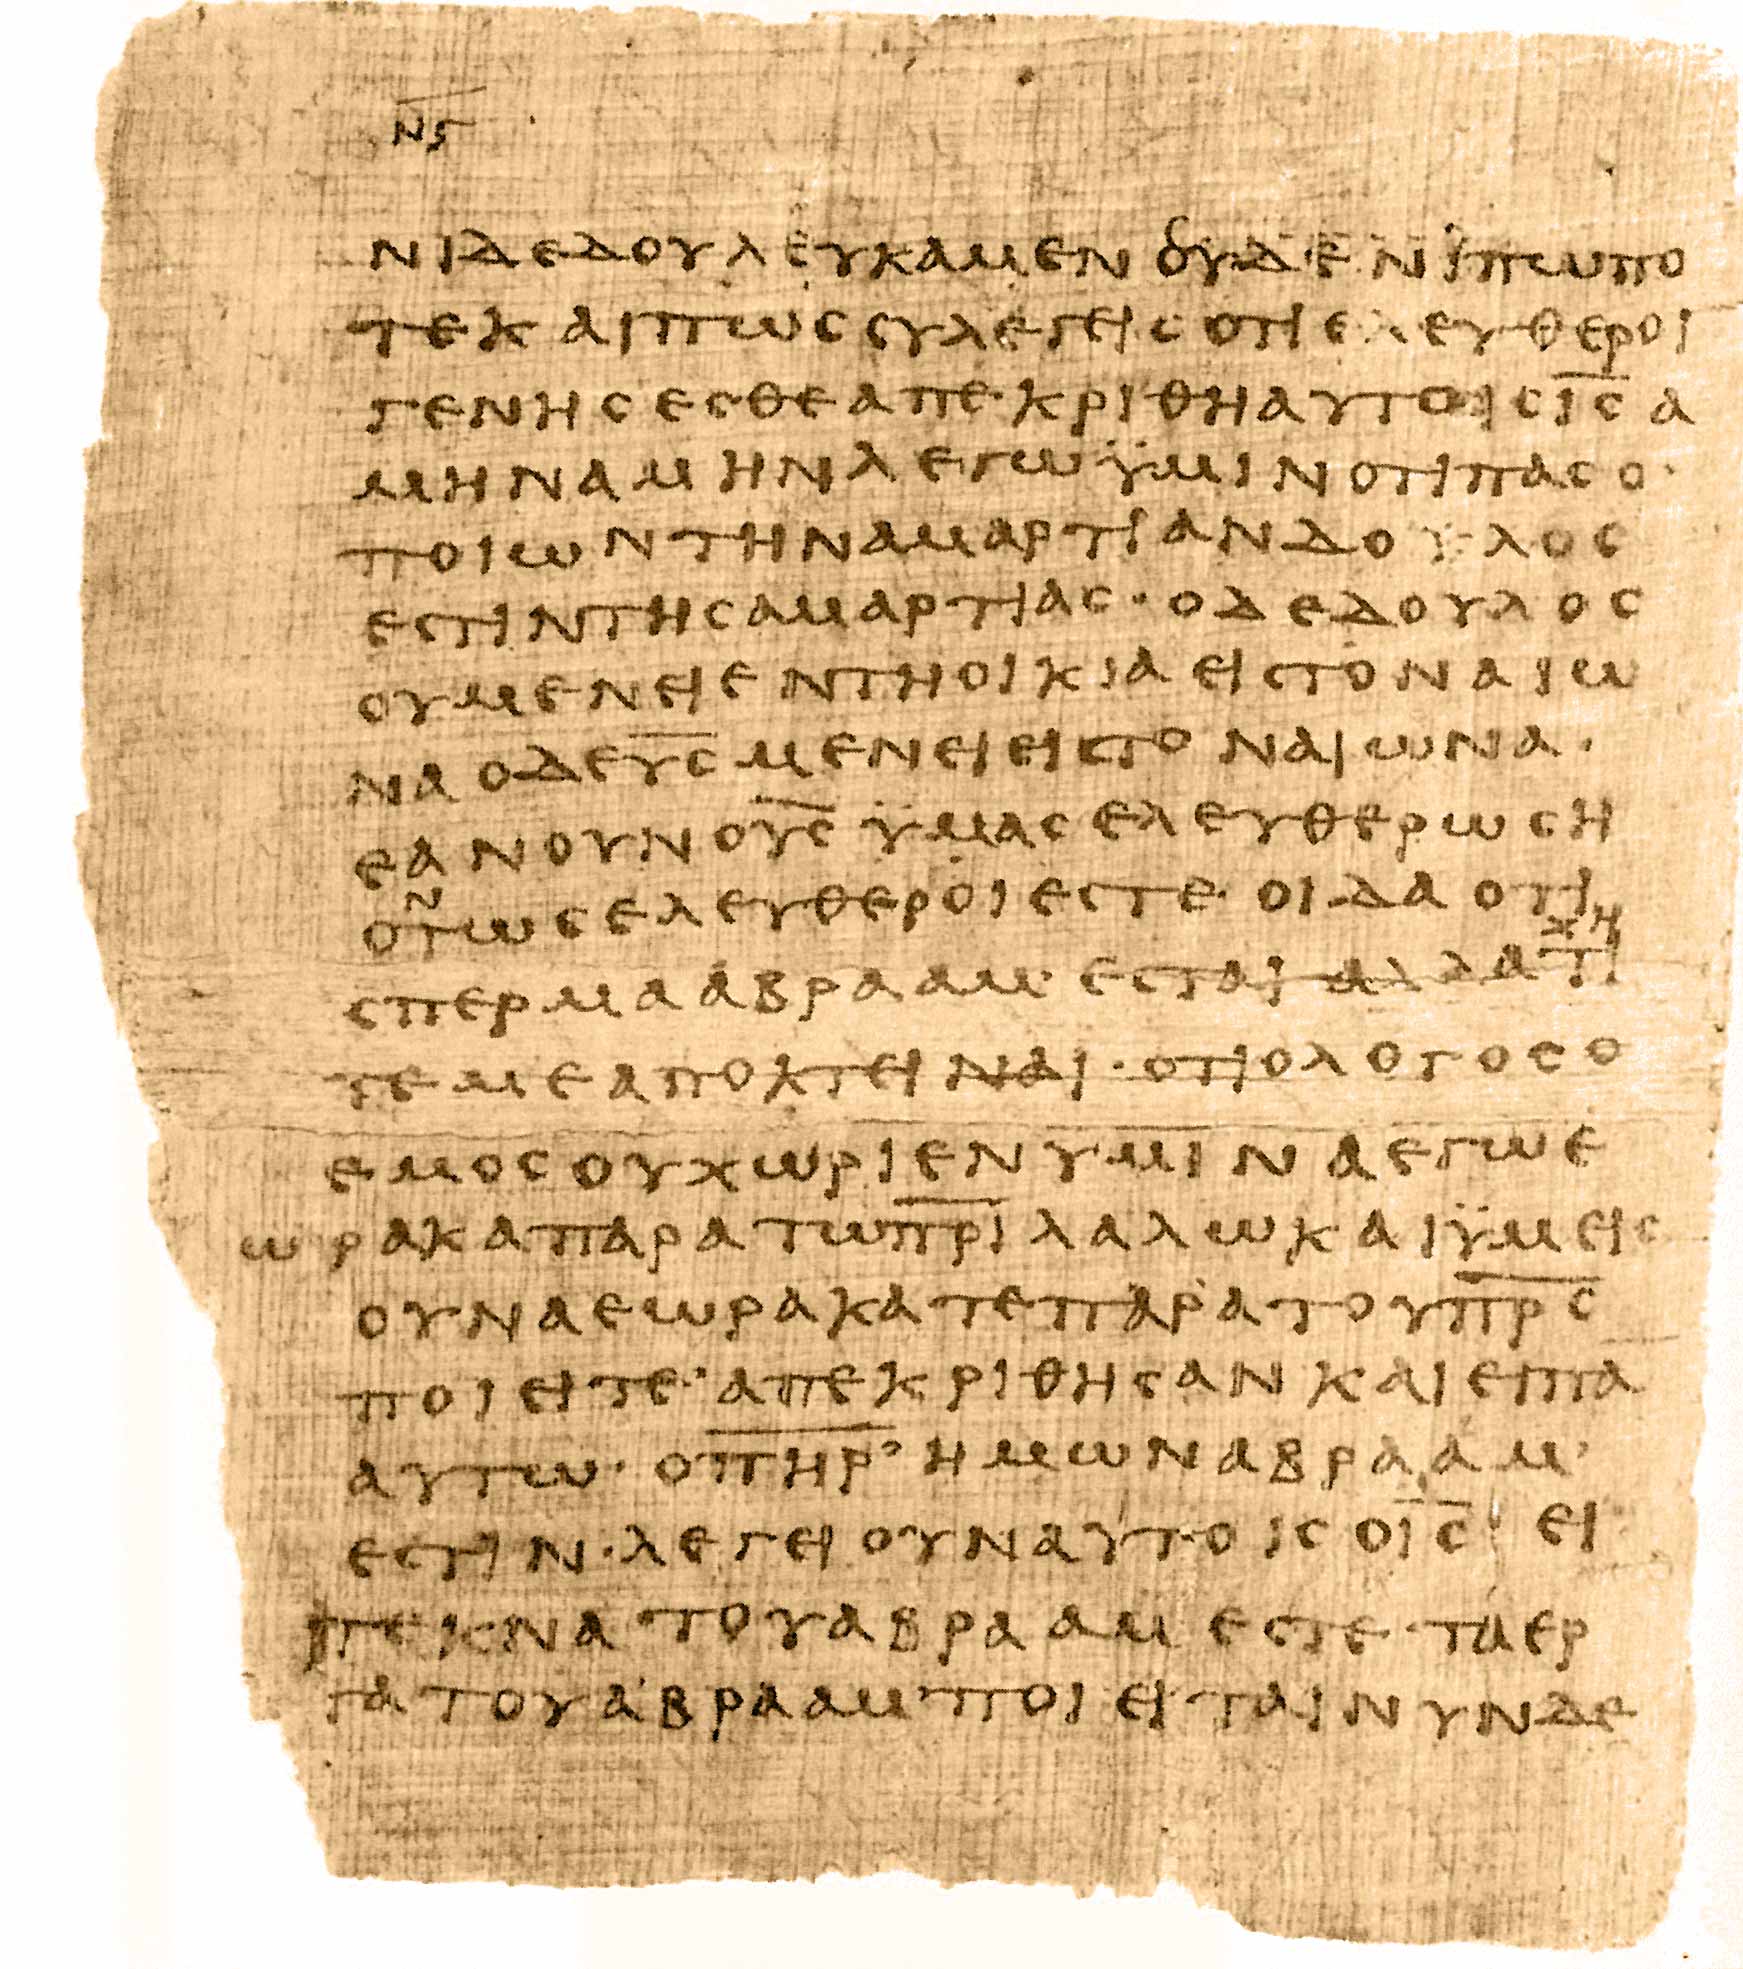 ΝϚ
ΝΙΔΕΔΟΥΛΕΥΚΑΜΕΝ ΟΥΔΕΝΙΠΩΠΟ
ΤΕΚΑΙΠΩϹϹΥΛΕΓΕΙϹΟΤΙΕΛΕΥΘΕΡΟΙ
ΓΕΝΗϹΕϹΘΕΑΠΕΚΡΙΘΗΑΥΤΟΙϹΙ̅Ϲ̅Α
ΜΗΝΑΜΗΝΛΕΓΩΫΜΙΝΟΤΙΠΑϹΟ·
ΠΟΙΩΝΤΗΝΑΜΑΡΤΙΑΝΔΟΥΛΟϹ
ΕϹΤΙΝΤΗϹΑΜΑΡΤΙΑϹ·ΟΔΕΔΟΥΛΟϹ
ΟΥΜΕΝΕΙΕΝΤΗΟΙΚΙΑΕΙϹΤΟΝΑΙΩ
ΝΑΟΔΕΥ̅Ϲ̅ΜΕΝΕΙΕΙϹΤΟΝΑΙΩΝΑ·
ΕΑΝΟΥΝΟΥ̅Ϲ̅ΫΜΑϹΕΛΕΥΘΕΡΩϹΗ
ΟΝΤΩϹΕΛΕΥΘΕΡΟΙΕϹΤΕ·ΟΙΔΑΟΤΙ
ϹΠΕΡΜΑΑΒΡΑΑΜ·ΕϹΤΑΙΑΛΛΑΖΗΤΙ
ΤΕΜΕΑΠΟΚΤΕΙΝΑΙ·ΟΤΙΟΛΟΓΟϹΟ
ΕΜΟϹΟΥΧΩΡΙΕΝΥΜΙΝΑΕΓΩΕ
ΩΡΑΚΑΠΑΡΑΤΩΠ̅Ρ̅Ι̅ΛΑΛΩΚΑΙΫΜΕΙϹ
ΟΥΝΑΕΩΡΑΚΑΤΕΠΑΡΑΤΟΥΠ̅Ρ̅Ϲ̅
ΠΟΙΕΙΤΕ·ΑΠΕΚΡΙΘΗϹΑΝΚΑΙΕΙΠΑ
ΑΥΤΩ·ΟΠ̅Η̅Ρ̅ʼΗΜΩΝΑΒΡΑΑΜ·
ΕϹΤΙΝ·ΛΕΓΕΙΟΥΝΑΥΤΟΙϹΟΙ̅Ϲ̅ ΕΙ
ΤΕΚΝΑΤΟΥΑΒΡΑΑΜΕϹΤΕ·ΤΑΕΡ
ΓΑΤΟΥΑΒΡΑΑΜʼΠΟΙΕΙΤΑΙΝΥΝΔΕ